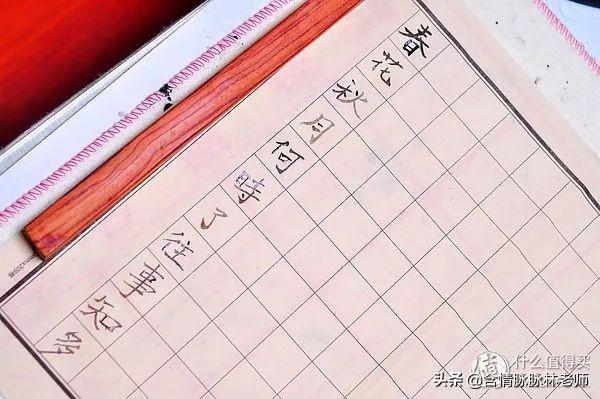 春花秋月何時了往事知多
值 什么值得买
头条 @含情脉脉林老师